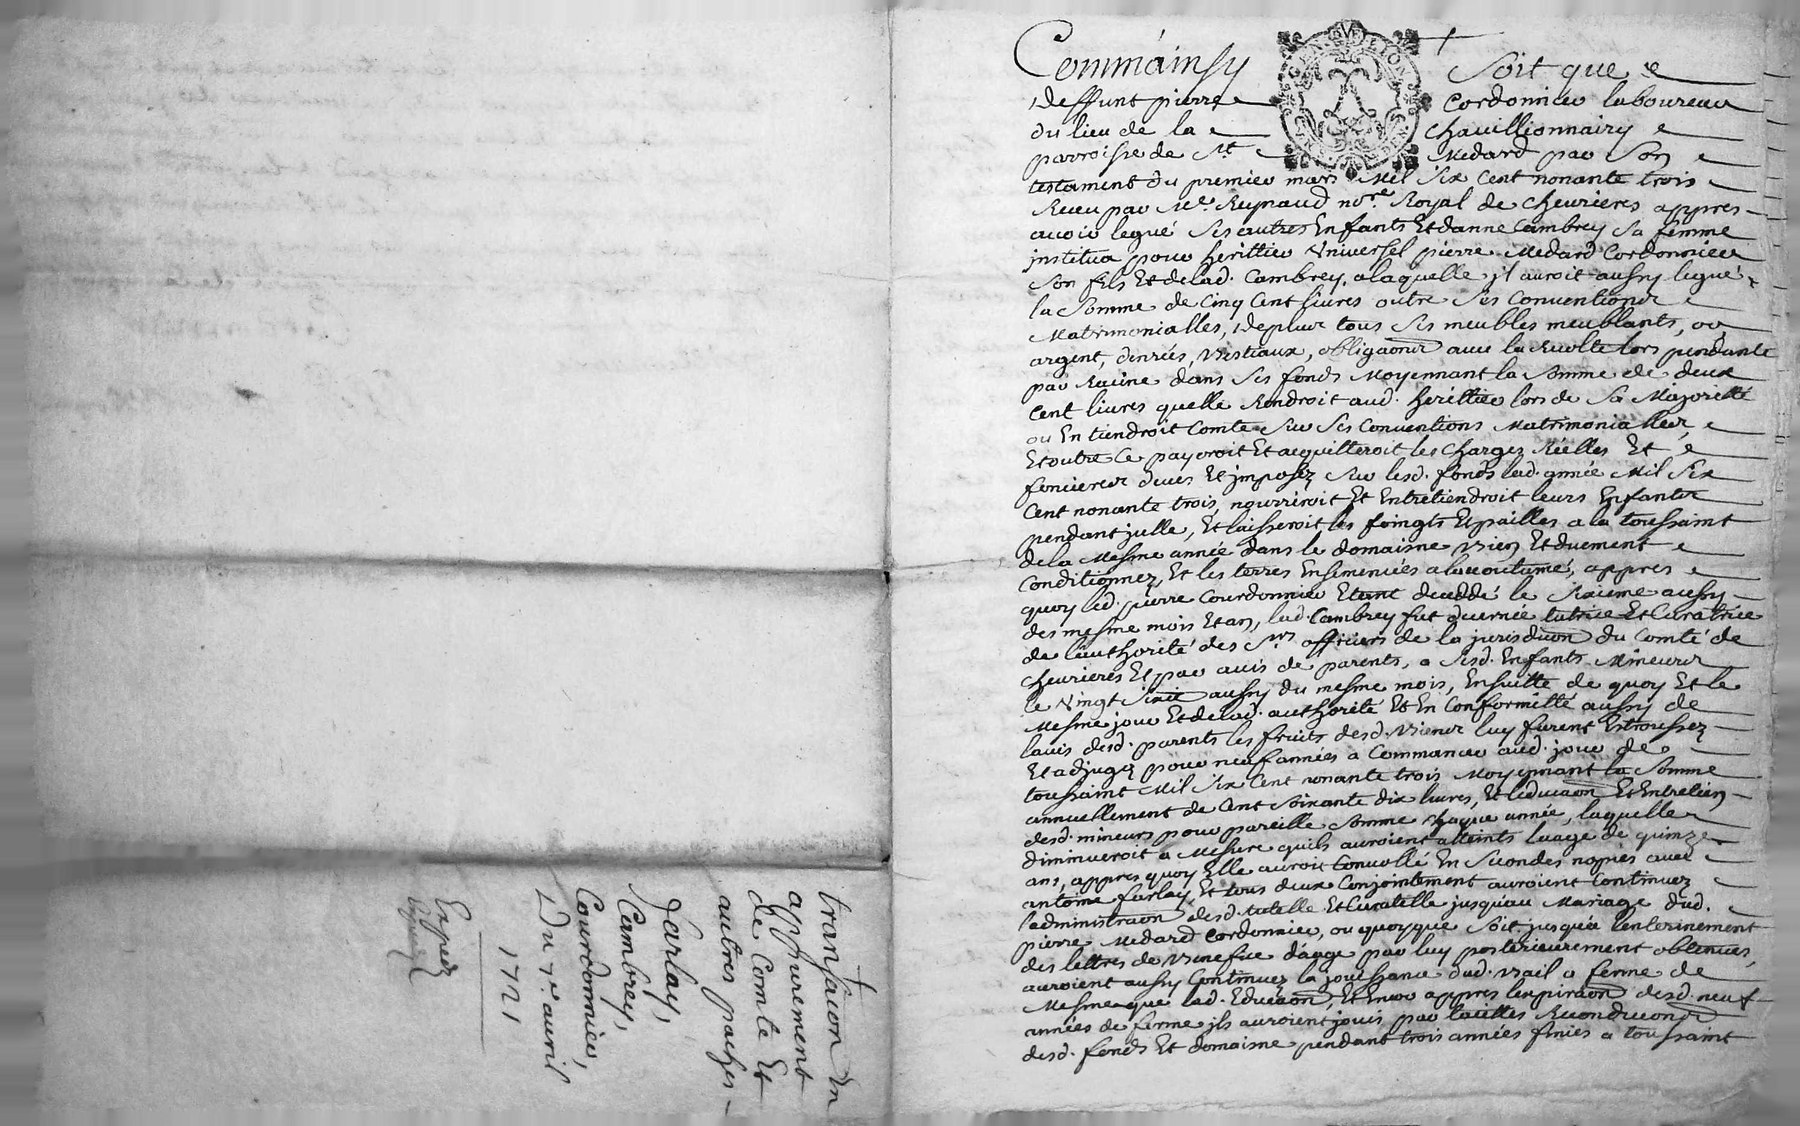 Comm'ainsy soit que
deffunt pierre Cordonnier laboureur
du lieu de la Chavillionnairy
parroisse de St. Medard par son
testament du premier mars Mil six Cent nonante trois
Receu par Me. Reynaud nore. Royal de Chevrieres appres
avoir legué ses autres Enfants Et danne Cambrey sa femme
institua pour heritier Universel pierre Medard Cordonnier
son fils Et de lad. Cambrey, a laquelle il auroit aussy legué
la somme de Cinq Cent livres outre ses Conventions
Matrimonialles, de plus tous ses meubles meublants, or,
argent, denrées, bestiaux, obligaons avec la Recolte lors pendante
par Racine dans ses fonds Moyennant la somme de deux
Cent livres quelle Rendroit aud. heritier lors de sa Majorité
ou En tiendroit Comte sur ses Conventions Matrimonialles,
Et outre Ce payeroit Et acquitteroit les Charges Réelles Et
foncieres deues Et imposez sur lesd. fonds lad. année Mil six
Cent nonante trois, nourriroit Et Entretiendroit leurs Enfants
pendant jcelle, Et laisseroit les foingts Et pailles a la toussaint
de la Mesme année dans le domaisne bien Et duement
Conditionnez Et les terres Ensemencées a la coutume, appres
quoy led. pierre Courdonnier Etant decedé le sixieme aussy
des mesme mois Et an, lad. Cambrey fut decernée tutrice Et Curatrice
de l'authorité des Srs. officiers de la jurisdicon du Comté de
Chevrieres Et par avis de parents, a sesd. Enfants Mineurs
le Vingt sixie aussy du mesme mois, Ensuitte de quoy Et le
Mesme jour Et de lad. authorité Et En Conformitté aussy de
lavis desd. parents les fruits desd. biens luy furent Estroussez
Et adjugez pour neuf années a Commancer aud. jour de
toussaint Mil six Cent nonante trois Moyennant la somme
annuellement de Cent soixante dix livres, Et leducaon Et Entretien
desd. mineurs pour pareille somme chaque année, laquelle
diminueroit a Mesure quils auroient atteints laage de quinze
ans, appres quoy Elle auroit Convollé En secondes nopces avec
antoine farlay, Et tous deux Conjointement auroient Continuez
l'administraon desd. tutelle Et Curatelle jusqu'au Mariage dud.
pierre Medard Cordonnier, ou quoyque soit jusqu'a lenterinement
des lettres de benefice d'aage par luy posterieurement obtenues,
auroient aussy Continuez la jouissance dud. bail a ferme de
Mesme que lad. Educaon, Et Encor appres lexpiraon desd. neuf
années de ferme ils auroient jouis par tacittes Reconducons
desd. fonds Et domaisne pendant trois années finies a toussaint
transacon En
appurement
de Comte Et
autres paches
farlay,
Cambrey,
Courdonnier,
Du 7e. avril
1721
Exped.